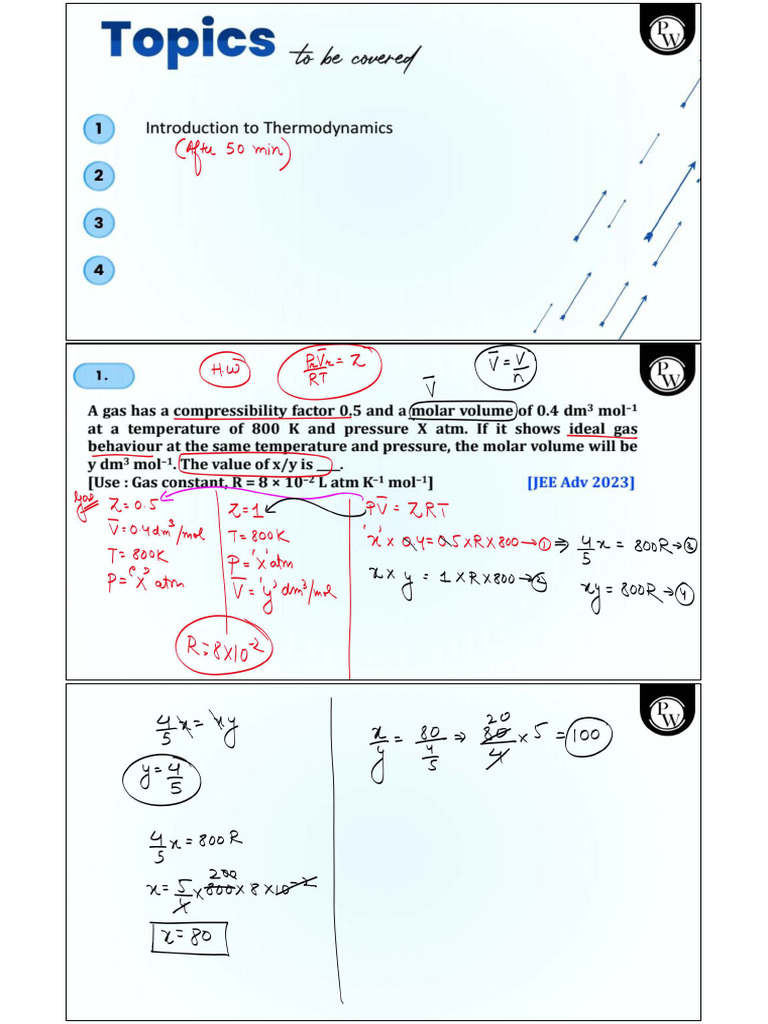 Topics to be covered
PW
1 Introduction to Thermodynamics
(After 50 min)
2
3
4
1.
H.W
PᵣV̄ᵣ/RT = Z
V̄ = V/n
PW
V̄
A gas has a compressibility factor 0.5 and a molar volume of 0.4 dm³ mol⁻¹
at a temperature of 800 K and pressure X atm. If it shows ideal gas
behaviour at the same temperature and pressure, the molar volume will be
y dm³ mol⁻¹. The value of x/y is ___.
[Use : Gas constant, R = 8 × 10⁻² L atm K⁻¹ mol⁻¹] [JEE Adv 2023]
gas
Z = 0.5
V̄ = 0.4 dm³/mol
T = 800K
P = 'X' atm
Z = 1
T = 800K
P = 'X' atm
V̄ = 'y' dm³/mol
R = 8×10⁻²
PV̄ = ZRT
'x' × 0.4 = 0.5 × R × 800 → ① ⇒ 4/5 x = 800R → ③
x × y = 1 × R × 800 → ②
xy = 800R → ④
PW
4/5 x = xy
y = 4/5
4/5 x = 800R
200
x = 5/4 × 800 × 8 × 10⁻²
x = 80
x/y = 80/(4/5) ⇒ 80/4 × 5 = 100
20